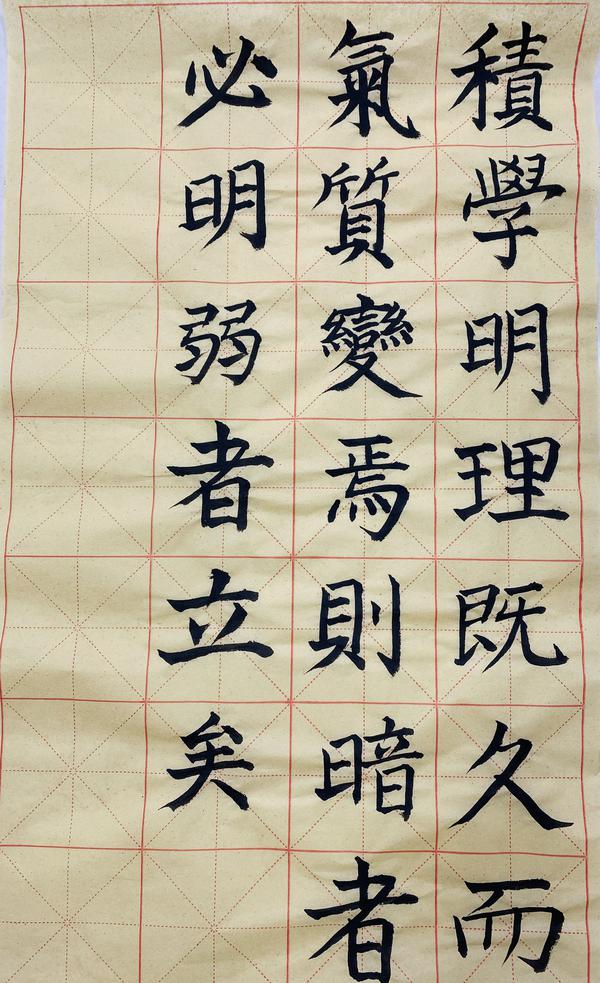 積學明理既久而
氣質變焉則暗者
必明弱者立矣